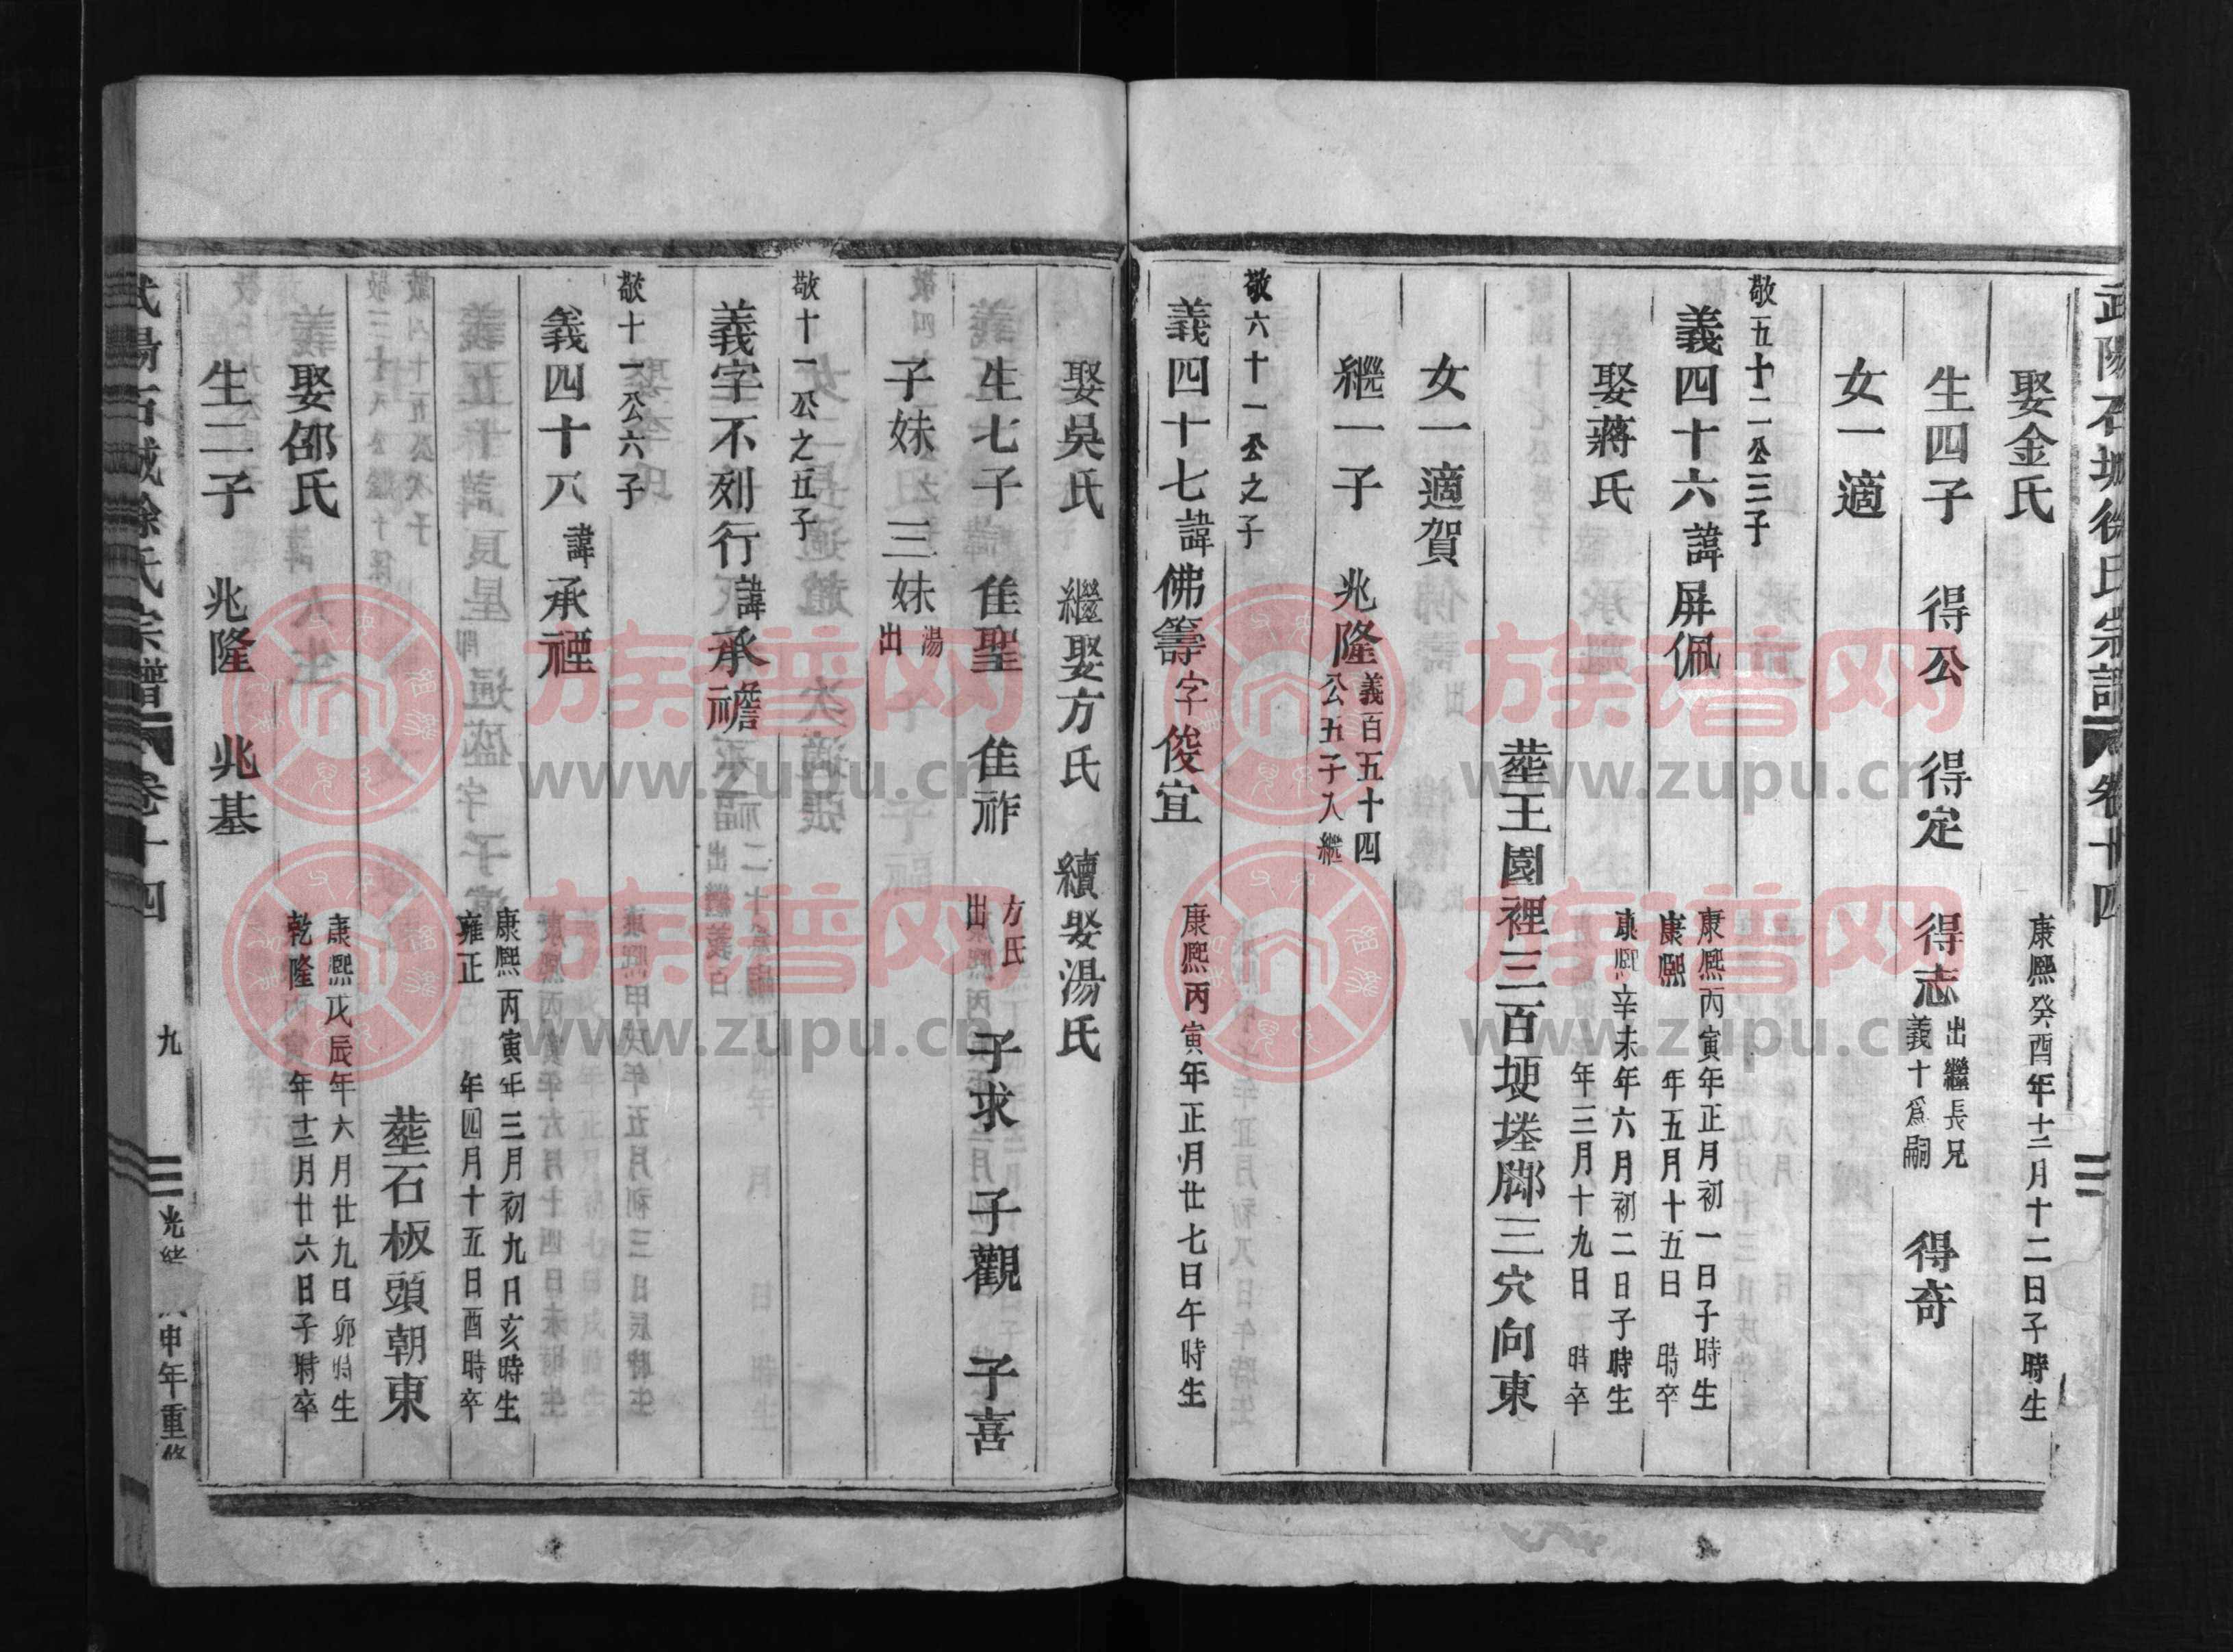 武陽石城徐氏宗譜 卷十四
娶金氏 康熙癸酉年十二月十二日子時生
生四子 得公 得定 得志 出繼長兄義十爲嗣 得奇
女一適
敬五十二公三子
義四十六諱屏佩 康熙丙寅年正月初一日子時生 康熙 年五月十五日 時卒
娶蔣氏 康熙辛未年六月初二日子時生 年三月十九日 時卒
塟王園裡三百埂塟脚三穴向東
女一適賀
繼一子 兆隆 義百五十四公五子入繼
敬六十一公之子
義四十七諱佛籌字俊宣 康熙丙寅年正月廿七日午時生
娶吳氏 繼娶方氏 續娶湯氏
生七子 隹聖 隹祚 方氏出 子求 子觀 子喜
子妹 三妹 湯出
敬十一公之五子
義字不列行諱承襜
敬十一公六子
義四十八諱承禋 康熙丙寅年三月初九日亥時生 雍正 年四月十五日酉時卒
塟石板頭朝東
娶邵氏 康熙戊辰年六月廿九日卯時生 乾隆 年十二月廿六日子時卒
生二子 兆隆 兆基
武陽石城徐氏宗譜 卷十四 九 光緒 申年重修
族谱网
www.zupu.cn
族谱网
www.zupu.cn
族谱网
www.zupu.cn
族谱网
www.zupu.cn